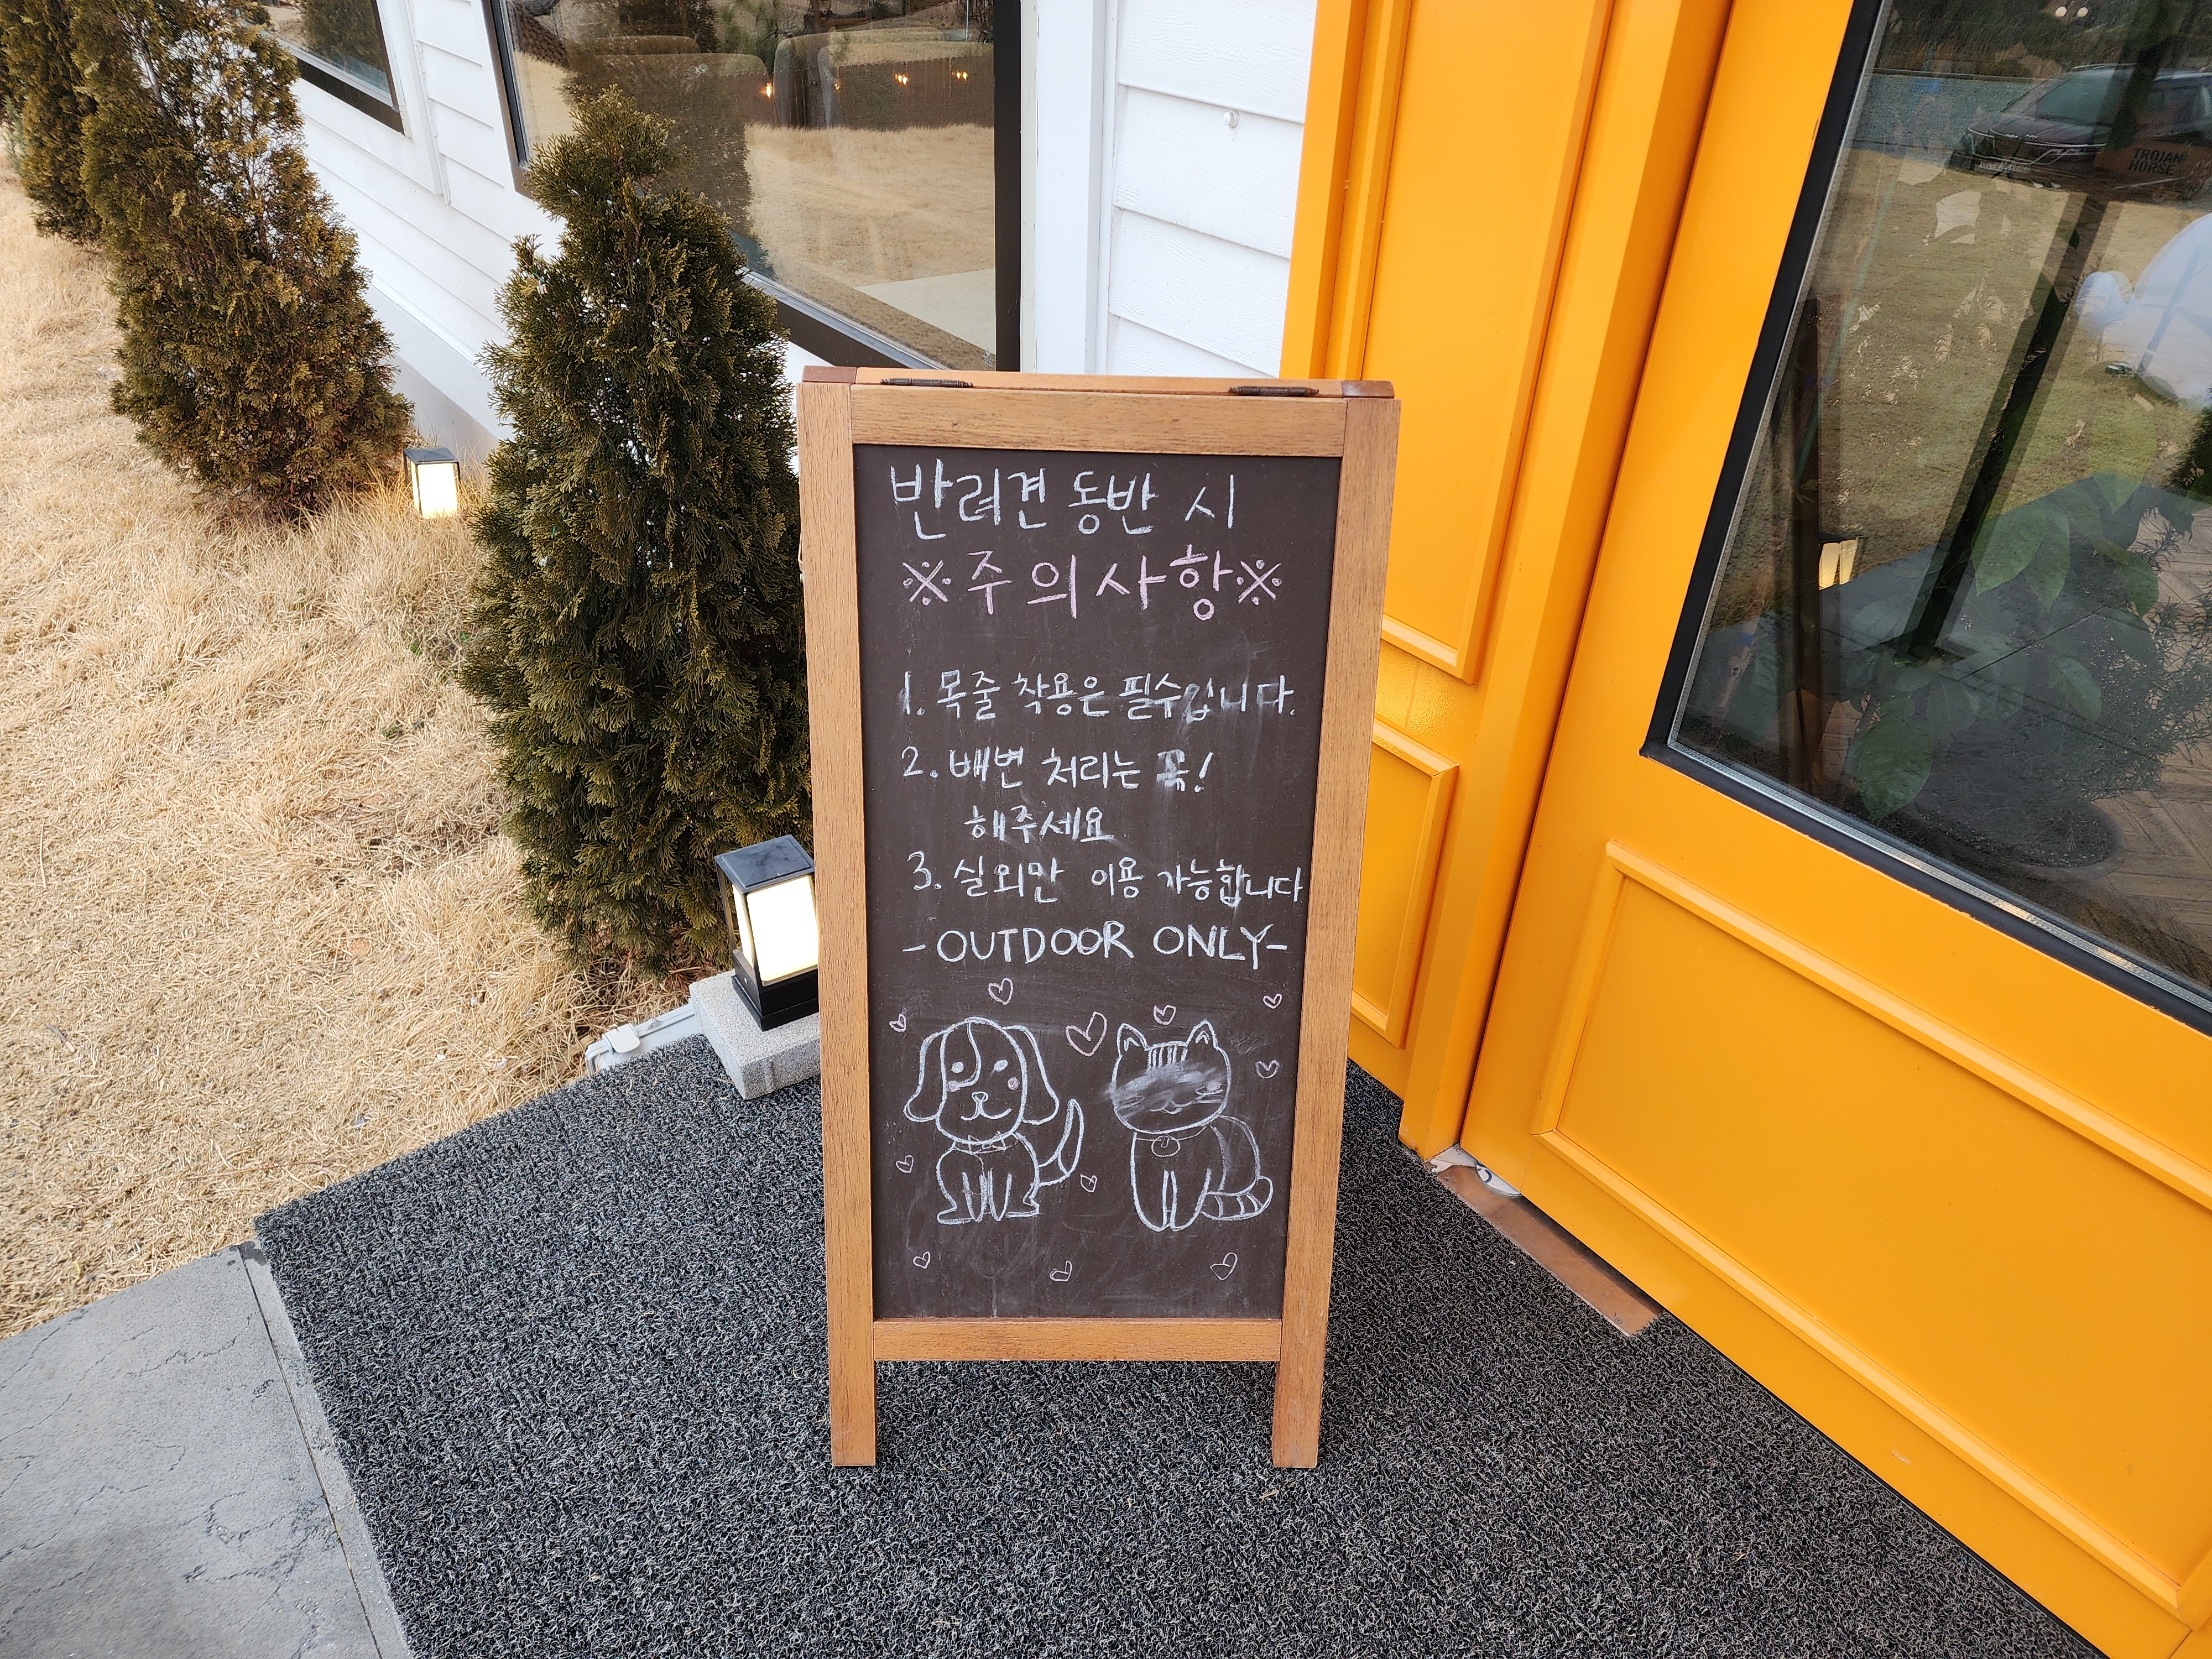 반려견 동반 시
※주의사항※
1. 목줄 착용은 필수입니다.
2. 배변 처리는 꼭!
해주세요
3. 실외만 이용 가능합니다
-OUTDOOR ONLY-
TROJAN
HORSE